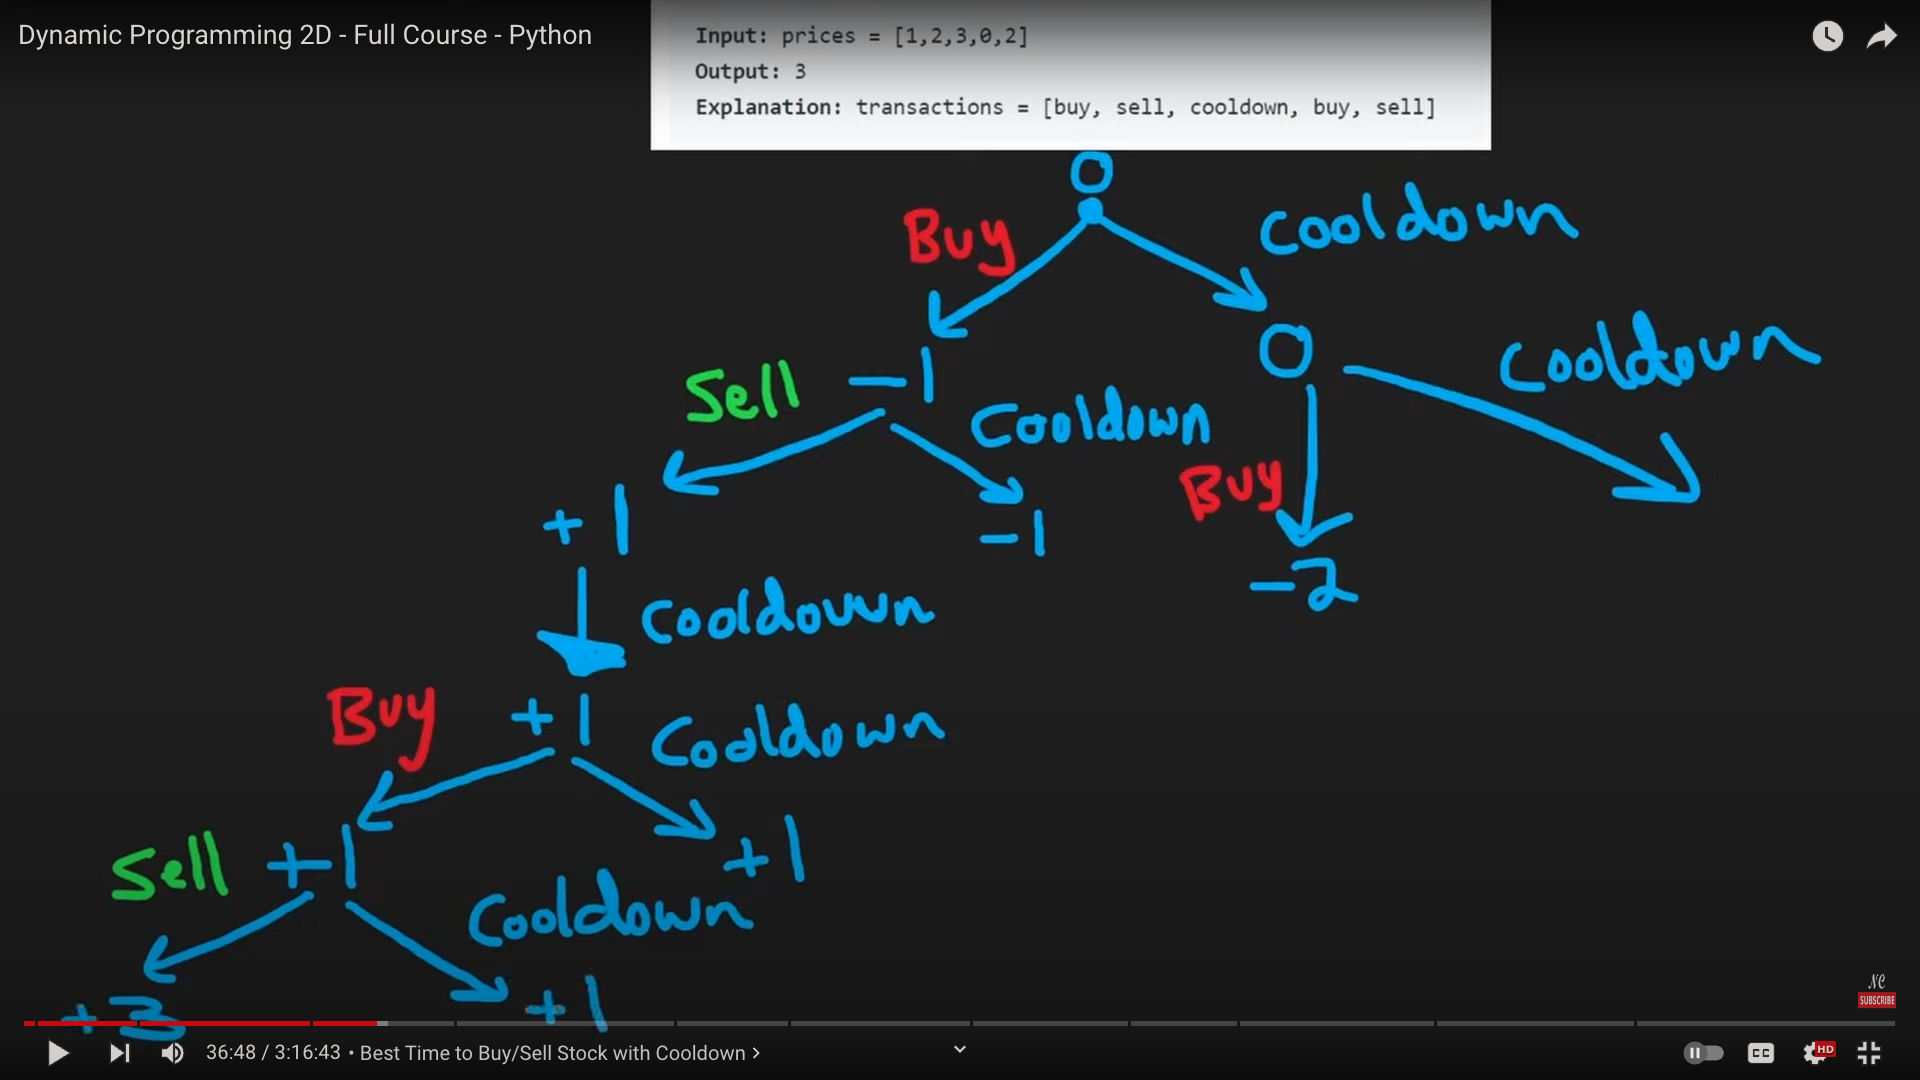 Dynamic Programming 2D - Full Course - Python
Input: prices = [1,2,3,0,2]
Output: 3
Explanation: transactions = [buy, sell, cooldown, buy, sell]
0
Buy
Cooldown
0
Cooldown
Sell
-1
Cooldown
Buy
+1
-1
-2
Cooldown
Buy
+1
Cooldown
Sell
+1
+1
Cooldown
+3
+1
NC
SUBSCRIBE
36:48 / 3:16:43 • Best Time to Buy/Sell Stock with Cooldown >
CC
HD